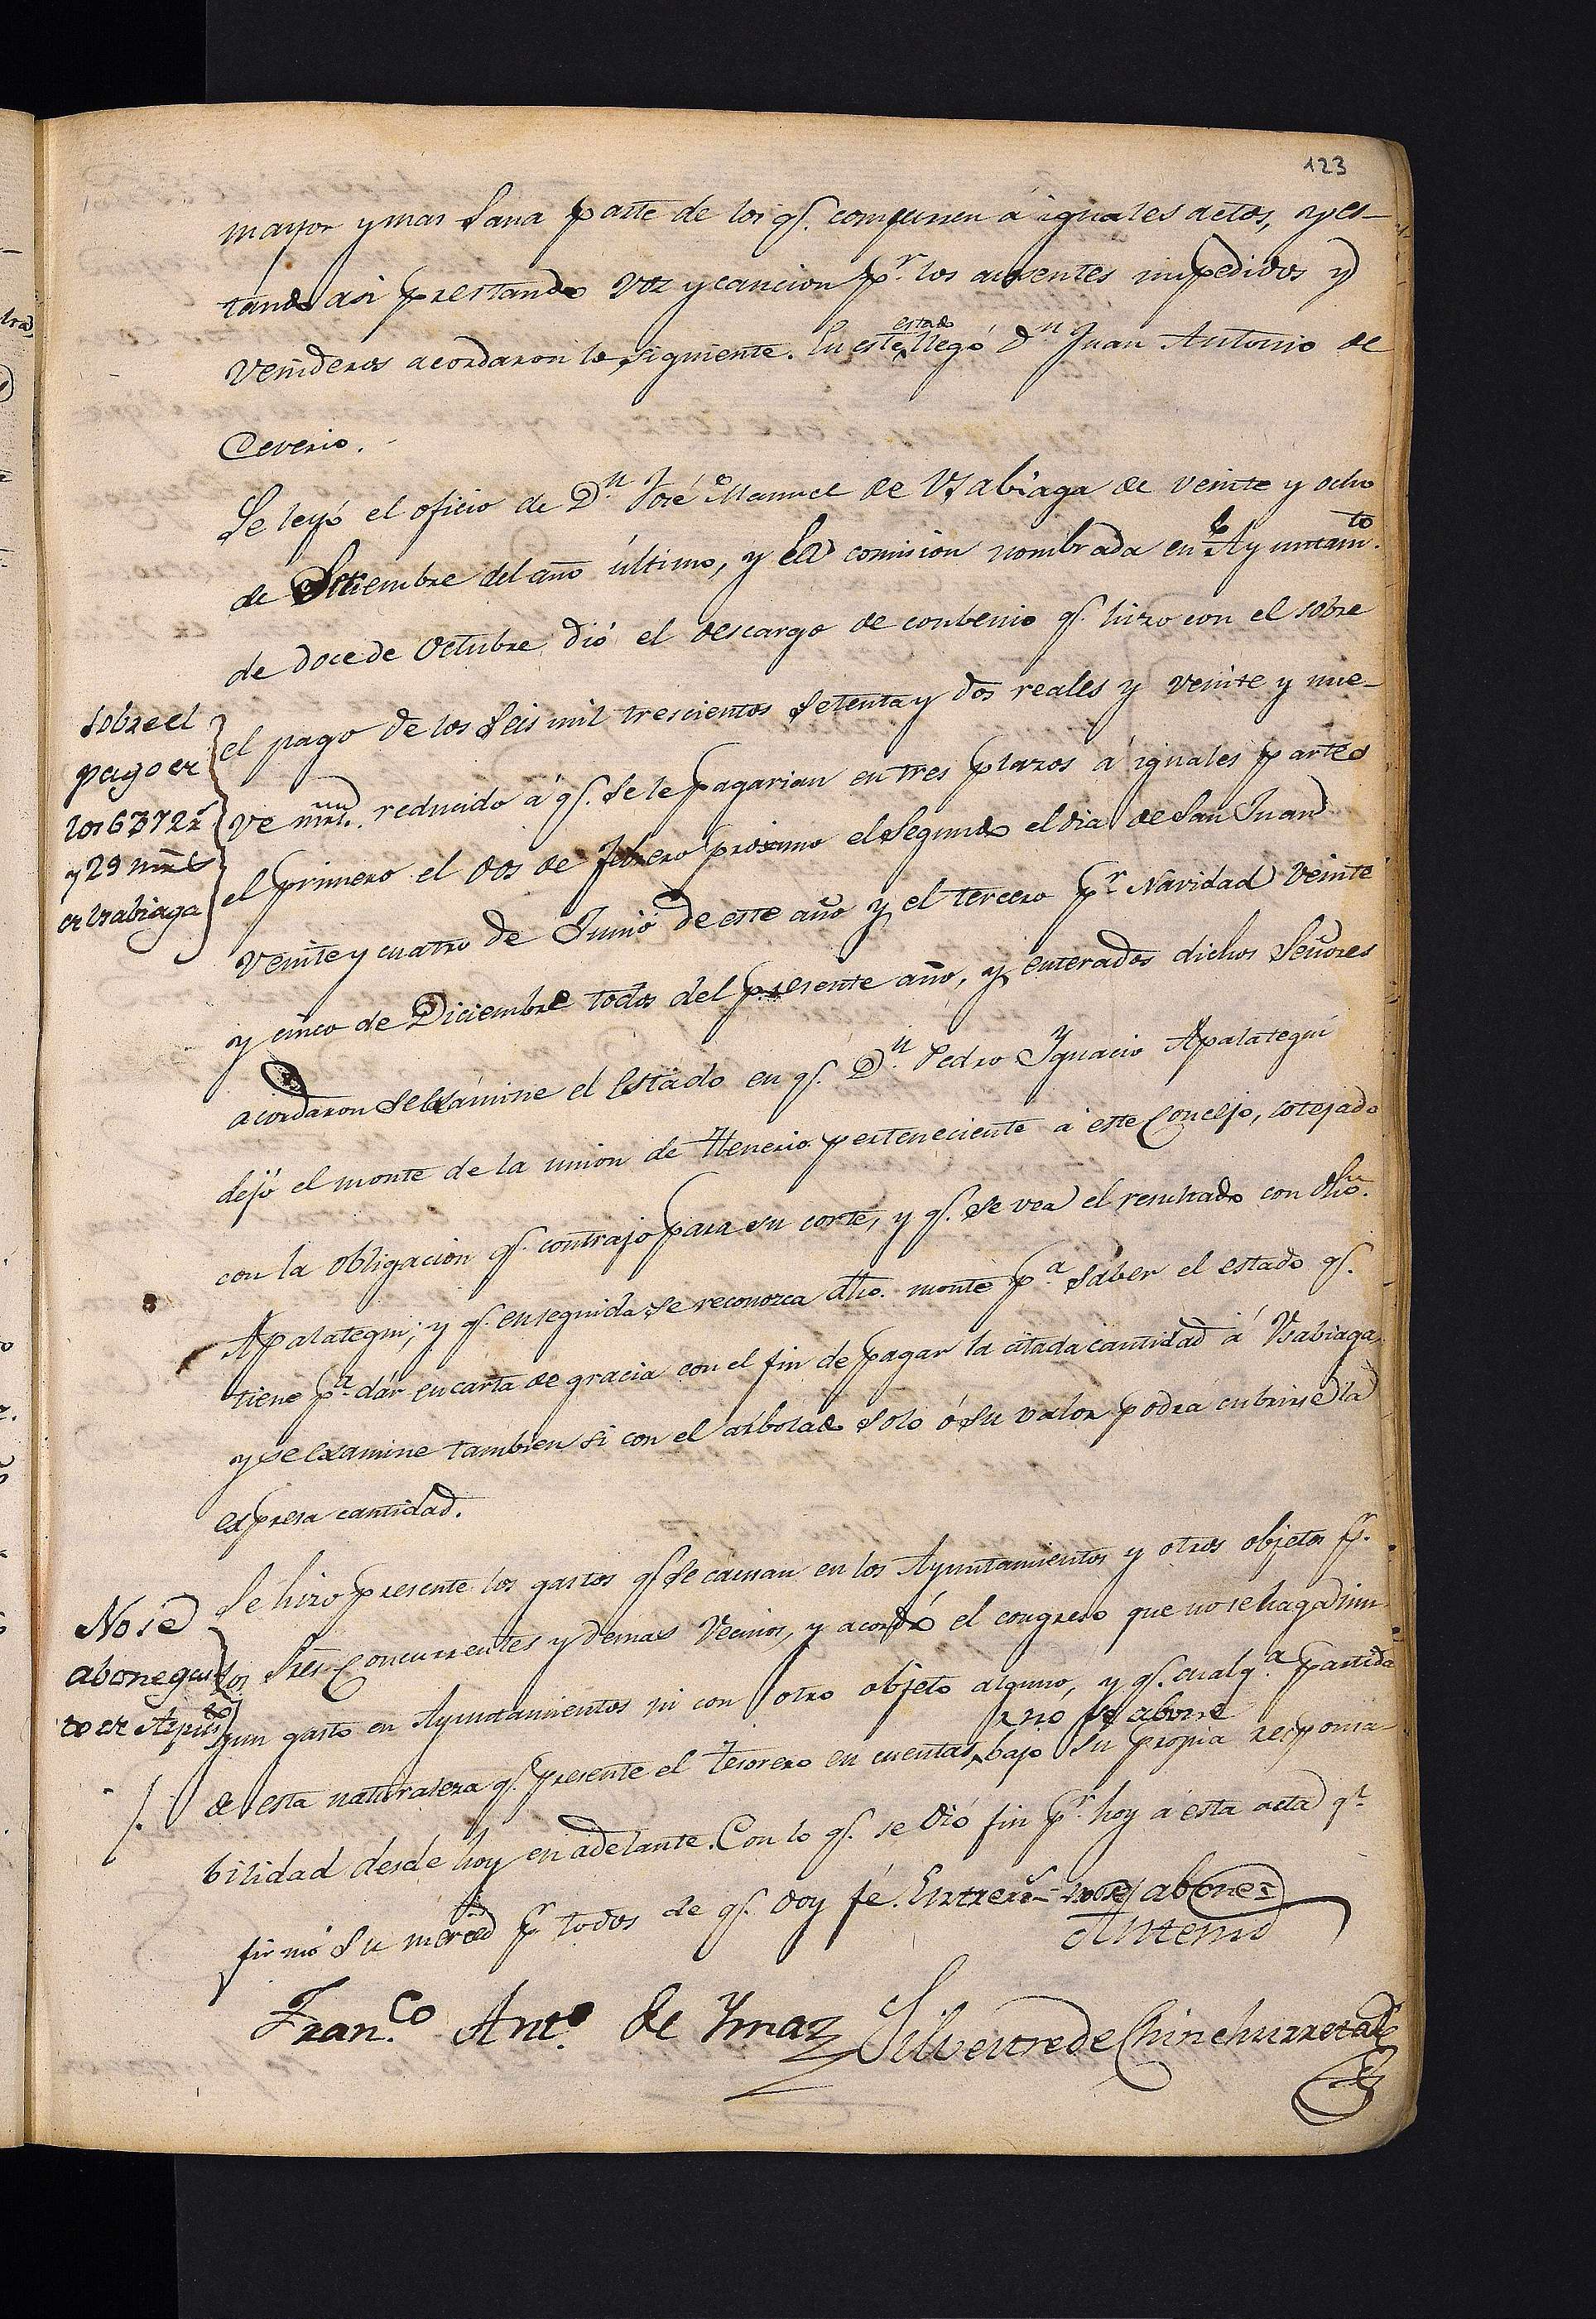 123
mayor y mas sana parte de los qs. componen á iguales actos, y es-
tando asi prestando voz y caucion pr. los ausentes impedidos y
venideros acordaron lo siguiente. En este estado llegó Dn Juan Antonio de
Ceverio.
Se leyó el oficio de Dn. José Manuel de Vsabiaga de veinte y ocho
de Setiembre del año último, y la comision nombrada en Ayuntamto.
de doce de Octubre dió el descargo de conbenio qs. hizo con el sobre
sobre el
pago de
los 6372 rs
y 29 mrs
de Vsabiaga
el pago de los seis mil trescientos setenta y dos reales y veinte y nue-
ve mrs. reducido á qs. se le pagarian en tres plazos á iguales partes
el primero el dos de Febrero proximo el segundo el dia de San Juan
veinte y cuatro de Junio de este año y el tercero pr. Navidad veinte
y cinco de Diciembre todos del presente año, y enterados dichos Señores
acordaron se examine el estado en qs. Dn. Pedro Ygnacio Apalategui
dejó el monte de la union de perteneciente á este Concejo, cotejado
con la obligacion qs. contrajo para su corte, y qs. se vea el resultado con dho.
Apalategui; y qs. enseguida se reconozca dho. monte pa. saber el estado qs.
tiene pa. dár en carta de gracia con el fin de pagar la citada cantidad á Vsabiaga
y se examine tambien si con el arbolado solo ó su valor podrá cubrirse la
expresa cantidad.
No se
abone gas
to de Ayuntto
Se hizo presente los gastos qs. se causan en los Ayuntamientos y otros objetos pr.
los Sres. Concurrentes y demas Vecinos, y acordó el congreso que no se haga nin
gun gasto en Ayuntamientos ni con otro objeto alguno, y qs. cualqa. partida
de esta naturaleza qs. presente el Tesorero en cuentas, no se abone bajo su propia responsa
bilidad desde hoy en adelante. Con lo qs. se dió fin pr. hoy á esta acta qe.
firmó su merced pr. todos de qs. doy fé. Entrers = no se abone =
Ante mi
Franco. Anto. de Ymaz Silvestre de Chinchurreta